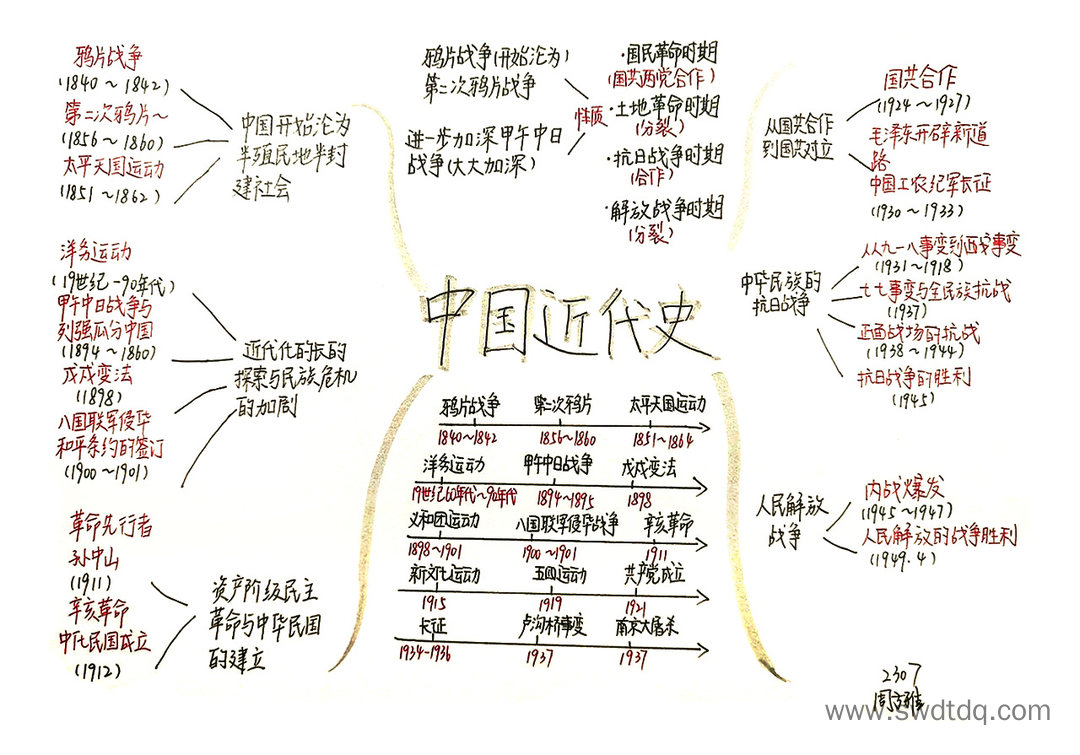 鸦片战争
(1840～1842)
第二次鸦片～
(1856～1860)
太平天国运动
(1851～1862)
中国开始沦为
半殖民地半封
建社会
洋务运动
(19世纪-90年代)
甲午中日战争与
列强瓜分中国
(1894～1860)
戊戌变法
(1898)
八国联军侵华
和平条约的签订
(1900～1901)
近代化的长的
探索与民族危机
的加剧
革命先行者
孙中山
(1911)
辛亥革命
中化民国成立
(1912)
资产阶级民主
革命与中华民国
的建立
鸦片战争(开始沦为)
第二次鸦片战争
进一步加深甲午中日
战争(大大加深)
性质
·国民革命时期
(国共两党合作)
·土地革命时期
(分裂)
·抗日战争时期
(合作)
·解放战争时期
(分裂)
中国近代史
鸦片战争 第二次鸦片 太平天国运动
1840～1842 1856～1860 1851～1864
洋务运动 甲午中日战争 戊戌变法
19世纪60年代～90年代 1894～1895 1898
义和团运动 八国联军侵华战争 辛亥革命
1898～1901 1900～1901 1911
新文化运动 五四运动 共产党成立
1915 1919 1921
长征 卢沟桥事变 南京大屠杀
1934-1936 1937 1937
从国共合作
到国共对立
国共合作
(1924～1927)
毛泽东开辟新道
路
中国工农纪军长征
(1930～1933)
中华民族的
抗日战争
从九一八事变到西战事变
(1931～1918)
七七事变与全民族抗战
(1937)
正面战场的抗战
(1938～1944)
抗日战争的胜利
(1945)
人民解放
战争
内战爆发
(1945～1947)
人民解放的战争胜利
(1949.4)
2307
www.swdtdq.com